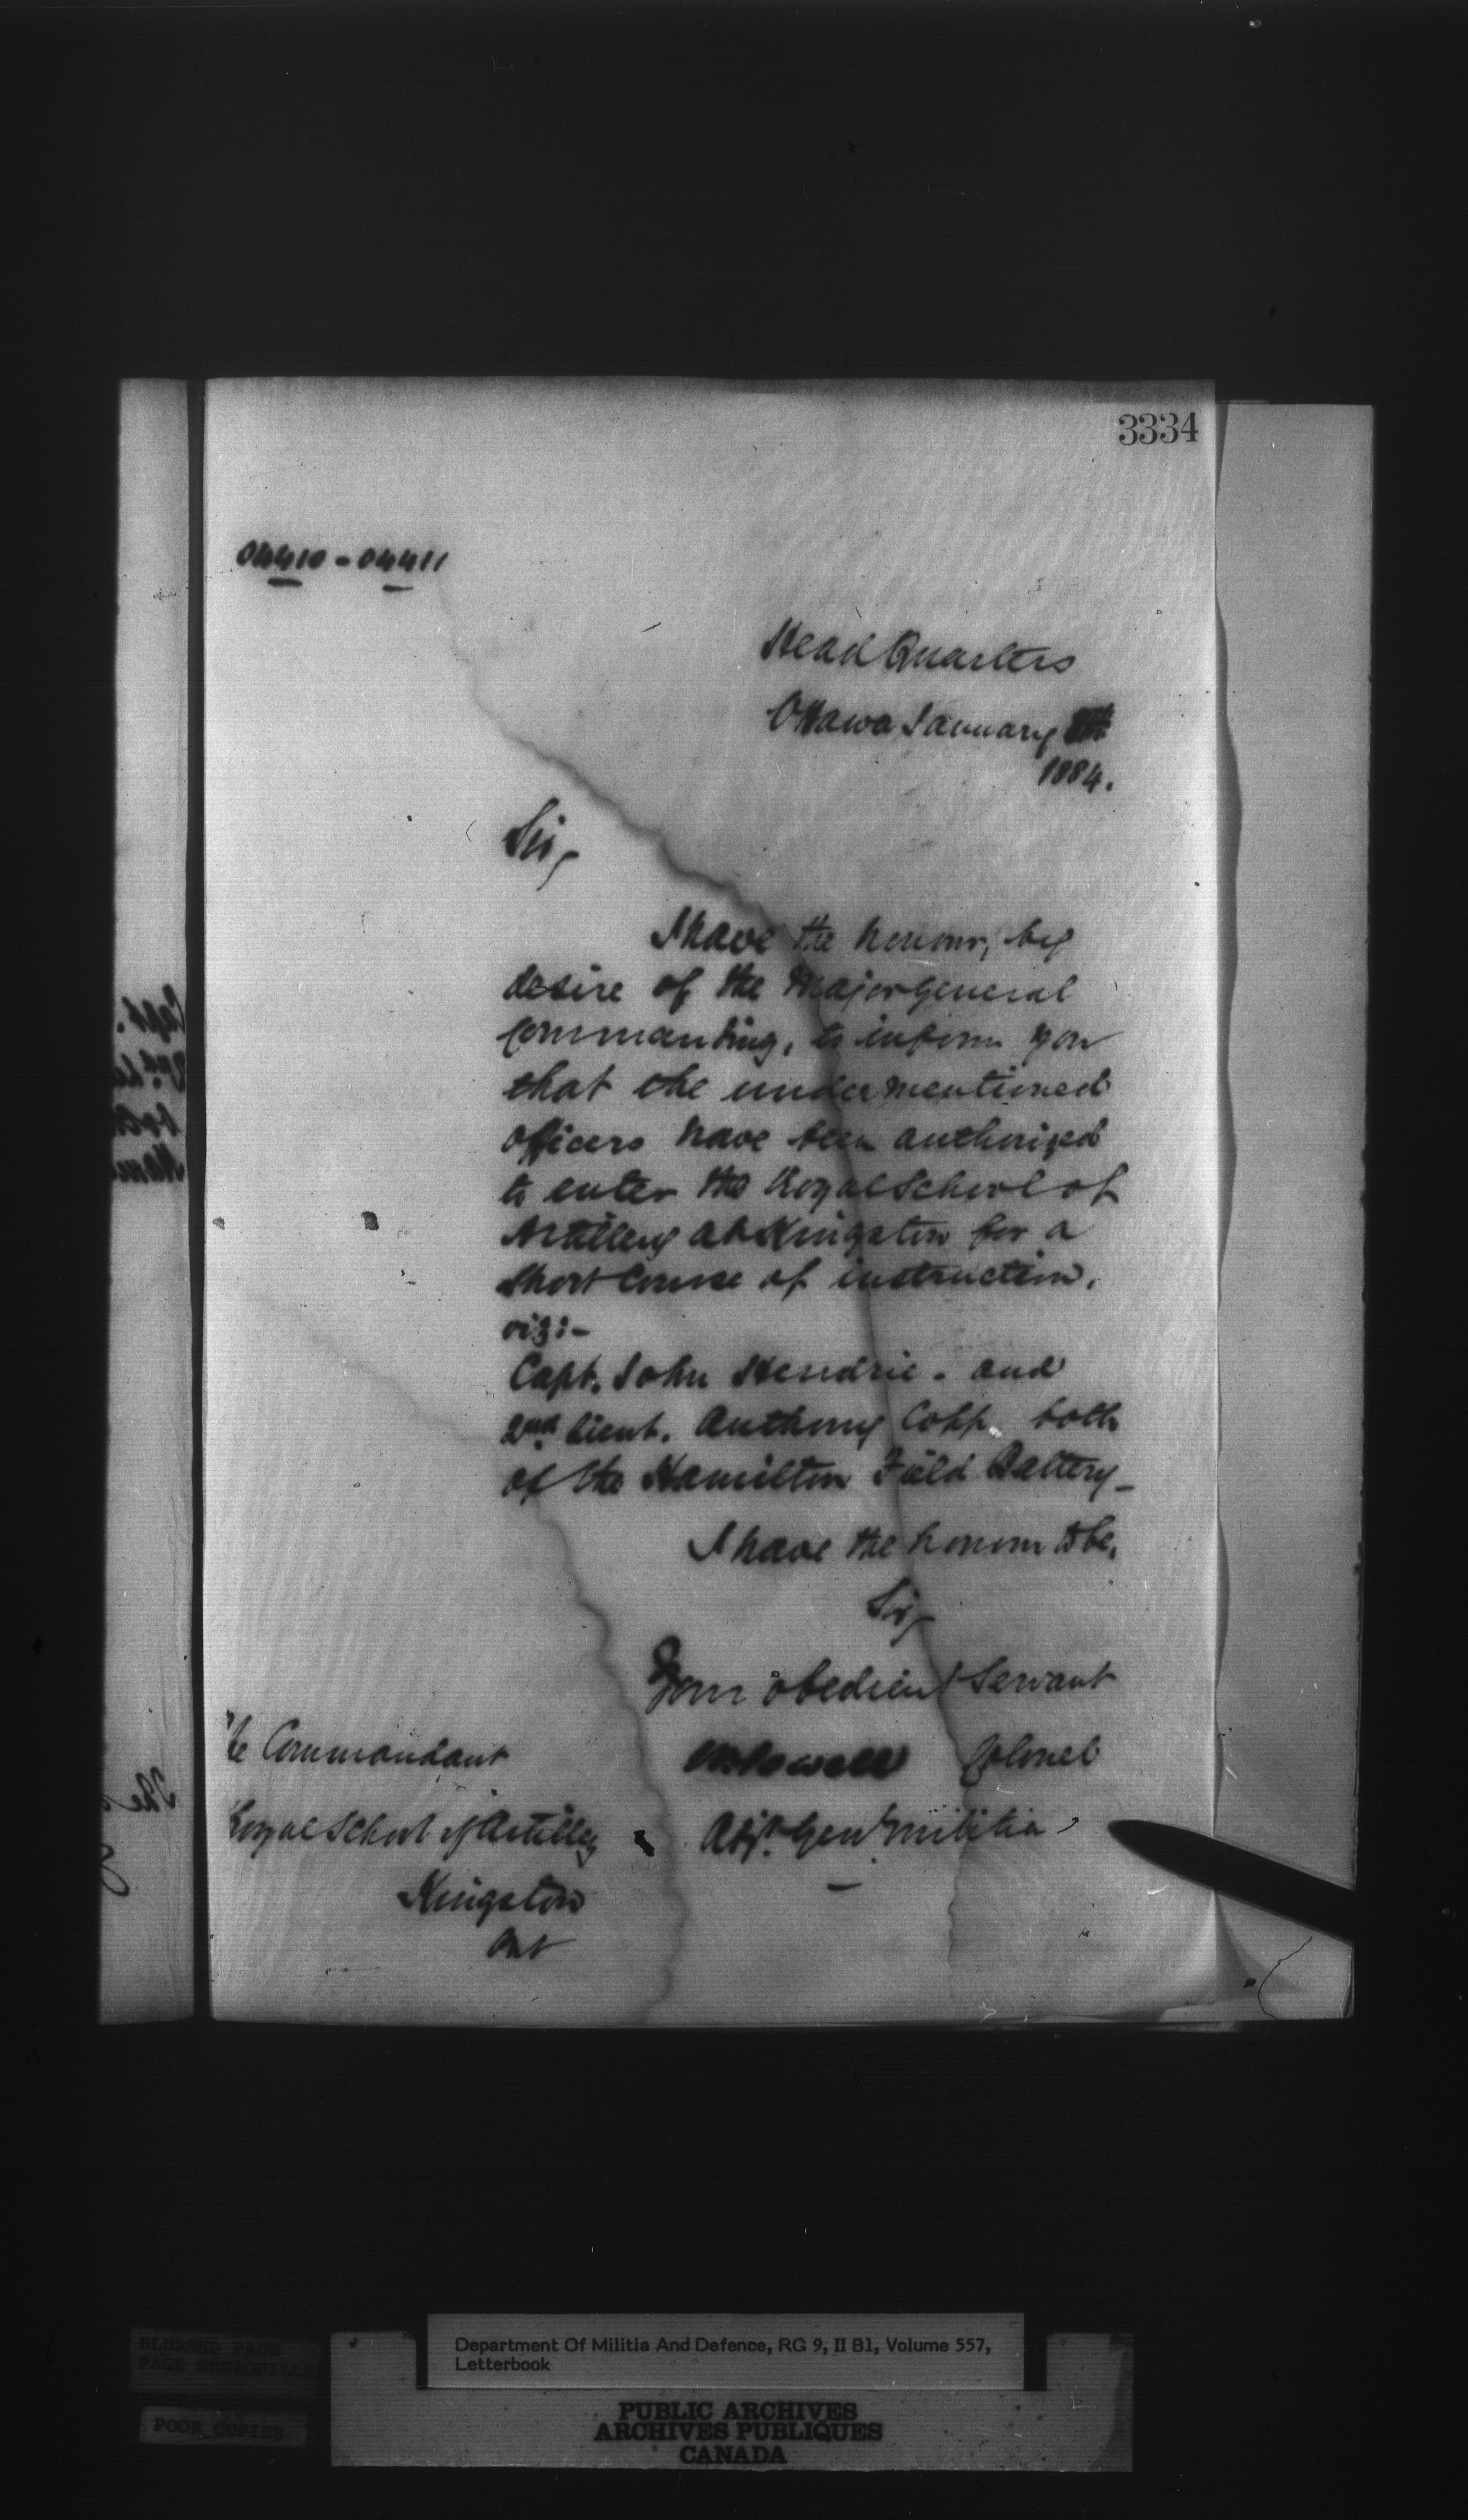 3334
04410 - 04411
Head Quarters
Ottawa January
1884.
Sir,
I have the honour, by
desire of the Major General
Commanding, to inform you
that the undermentioned
officers have been authorized
to enter the Royal School of
Artillery at Kingston for a
Short Course of instruction,
viz:-
Capt. John Hendrie - and
2nd Lieut. Anthony Copp both
of the Hamilton Field Battery_
I have the honour to be,
Sir,
Your obedient Servant
Colonel
Adjt. Genl. Militia
The Commandant
Royal School of Artillery
Kingston
Ont
BLURRED PAGE
PAGE EMBROUILLE
POOR COPIES
Department Of Militia And Defence, RG 9, II B1, Volume 557,
Letterbook
PUBLIC ARCHIVES
ARCHIVES PUBLIQUES
CANADA